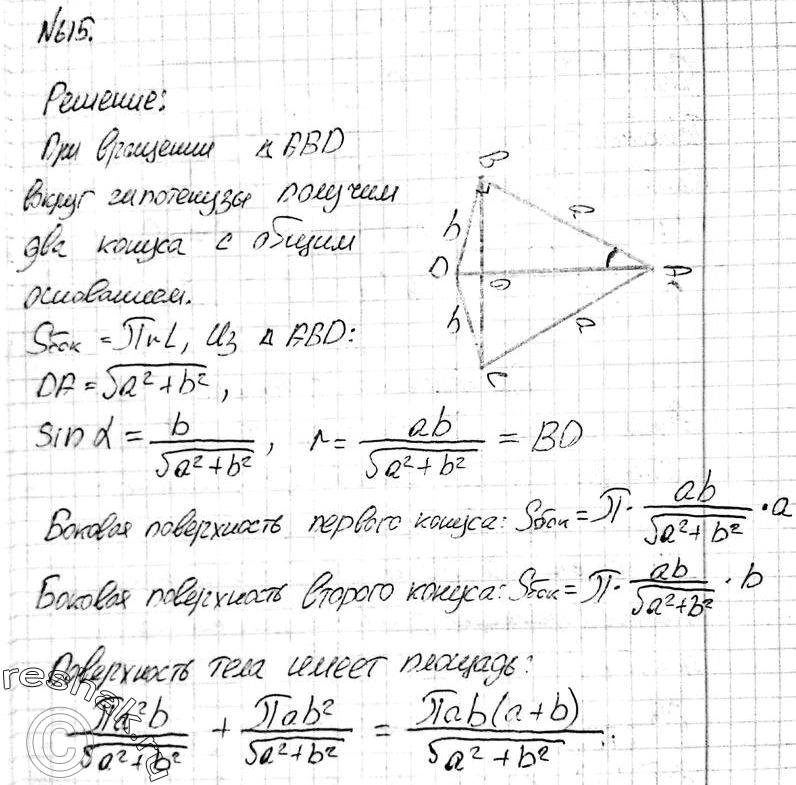 №615.
Решение:
При вращении △ABD
вокруг гипотенузы получим
два конуса с общим
основанием.
Sбок = πrL, Из △ABD:
DA = √(a² + b²),
sin α = b/√(a² + b²), r = ab/√(a² + b²) = BO
Боковая поверхность первого конуса: Sбок = π · ab/√(a² + b²) · a
Боковая поверхность второго конуса: Sбок = π · ab/√(a² + b²) · b
Поверхность тела имеет площадь:
πa²b/√(a² + b²) + πab²/√(a² + b²) = πab(a+b)/√(a² + b²).
B
a
b
D
O
A
b
a
C
reshak.ru
©